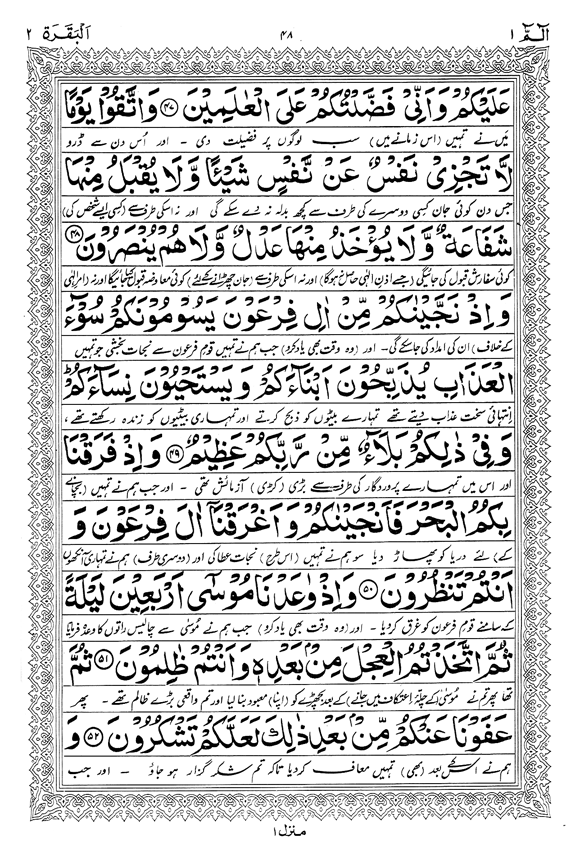 الٓـمّٓ ١ ٤٨ اَلْبَقَرَة ٢
عَلَيْكُمْ وَاَنِّیْ فَضَّلْتُكُمْ عَلَى الْعٰلَمِيْنَ ﴿٤٧﴾ وَاتَّقُوْا يَوْمًا
میں نے تمہیں (اس زمانے میں) سب لوگوں پر فضیلت دی ۔ اور اُس دن سے ڈرو
لَّا تَجْزِیْ نَفْسٌ عَنْ نَّفْسٍ شَيْئًا وَّلَا يُقْبَلُ مِنْهَا
جس دن کوئی جان کسی دوسرے کی طرف سے کچھ بدلہ نہ دے سکے گی اور نہ اسکی طرف سے (کسی ایسے شخص کی)
شَفَاعَةٌ وَّلَا يُؤْخَذُ مِنْهَا عَدْلٌ وَّلَا هُمْ يُنْصَرُوْنَ ﴿٤٨﴾
کوئی سفارش قبول کی جائیگی (جسے اذنِ الٰہی حاصل نہ ہوگا) اور نہ اسکی طرف سے (جان چھڑانے کے لئے) کوئی معاوضہ قبول کیا جائیگا اور نہ (امرِ الٰہی
وَاِذْ نَجَّيْنٰكُمْ مِّنْ اٰلِ فِرْعَوْنَ يَسُوْمُوْنَكُمْ سُوْٓءَ
کے خلاف) ان کی امداد کی جا سکے گی۔ اور (وہ وقت بھی یاد کرو) جب ہم نے تمہیں قومِ فرعون سے نجات بخشی جو تمہیں
الْعَذَابِ يُذَبِّحُوْنَ اَبْنَآءَكُمْ وَيَسْتَحْيُوْنَ نِسَآءَكُمْ ؕ
انتہائی سخت عذاب دیتے تھے تمہارے بیٹوں کو ذبح کرتے اور تمہاری بیٹیوں کو زندہ رکھتے تھے ،
وَفِیْ ذٰلِكُمْ بَلَآءٌ مِّنْ رَّبِّكُمْ عَظِيْمٌ ﴿٤٩﴾ وَاِذْ فَرَقْنَا
اور اس میں تمہارے پروردگار کی طرف سے بڑی (کڑی) آزمائش تھی ۔ اور جب ہم نے تمہیں (بچانے
بِكُمُ الْبَحْرَ فَاَنْجَيْنٰكُمْ وَاَغْرَقْنَآ اٰلَ فِرْعَوْنَ وَ
کے) لئے دریا کو پھاڑ دیا سو ہم نے تمہیں (اس طرح) نجات عطا کی اور (دوسری طرف) ہم نے تمہاری آنکھوں
اَنْتُمْ تَنْظُرُوْنَ ﴿٥٠﴾ وَاِذْ وٰعَدْنَا مُوْسٰٓى اَرْبَعِيْنَ لَيْلَةً
کے سامنے قومِ فرعون کو غرق کر دیا ۔ اور (وہ وقت بھی یاد کرو) جب ہم نے موسٰی سے چالیس راتوں کا وعدہ فرمایا
ثُمَّ اتَّخَذْتُمُ الْعِجْلَ مِنْۢ بَعْدِهٖ وَاَنْتُمْ ظٰلِمُوْنَ ﴿٥١﴾ ثُمَّ
تھا پھر تم نے موسٰی کے چلّۂ اعتکاف میں جانے) کے بعد بچھڑے کو (اپنا) معبود بنا لیا اور تم واقعی بڑے ظالم تھے ۔ پھر
عَفَوْنَا عَنْكُمْ مِّنْۢ بَعْدِ ذٰلِكَ لَعَلَّكُمْ تَشْكُرُوْنَ ﴿٥٢﴾ وَ
ہم نے اسکے بعد (بھی) تمہیں معاف کر دیا تاکہ تم شکر گزار ہو جاؤ ۔ اور جب
منزل ١